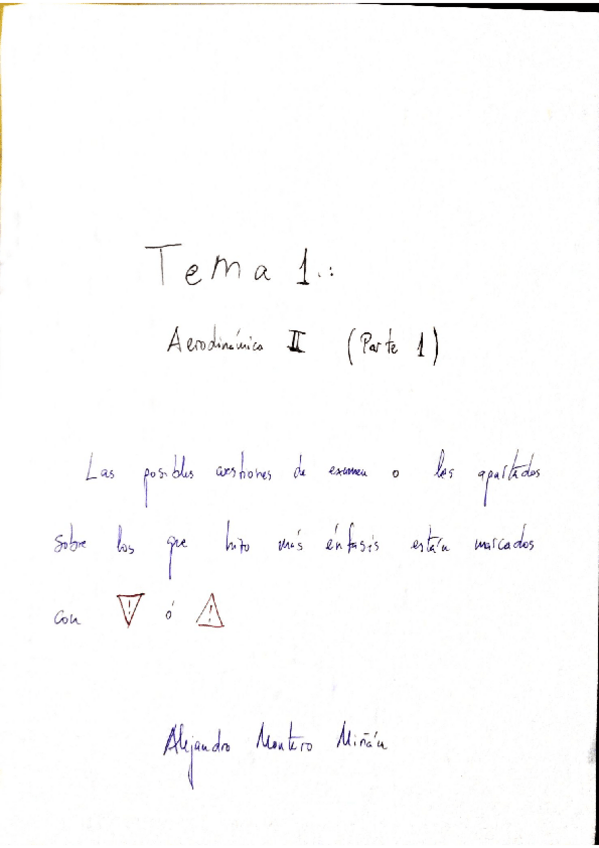 Tema 1.:
Aerodinámica II (Parte 1)
Las posibles cuestiones de examen o los apartados
sobre los que hizo más énfasis están marcados
con ó
Alejandro Montero Miñán